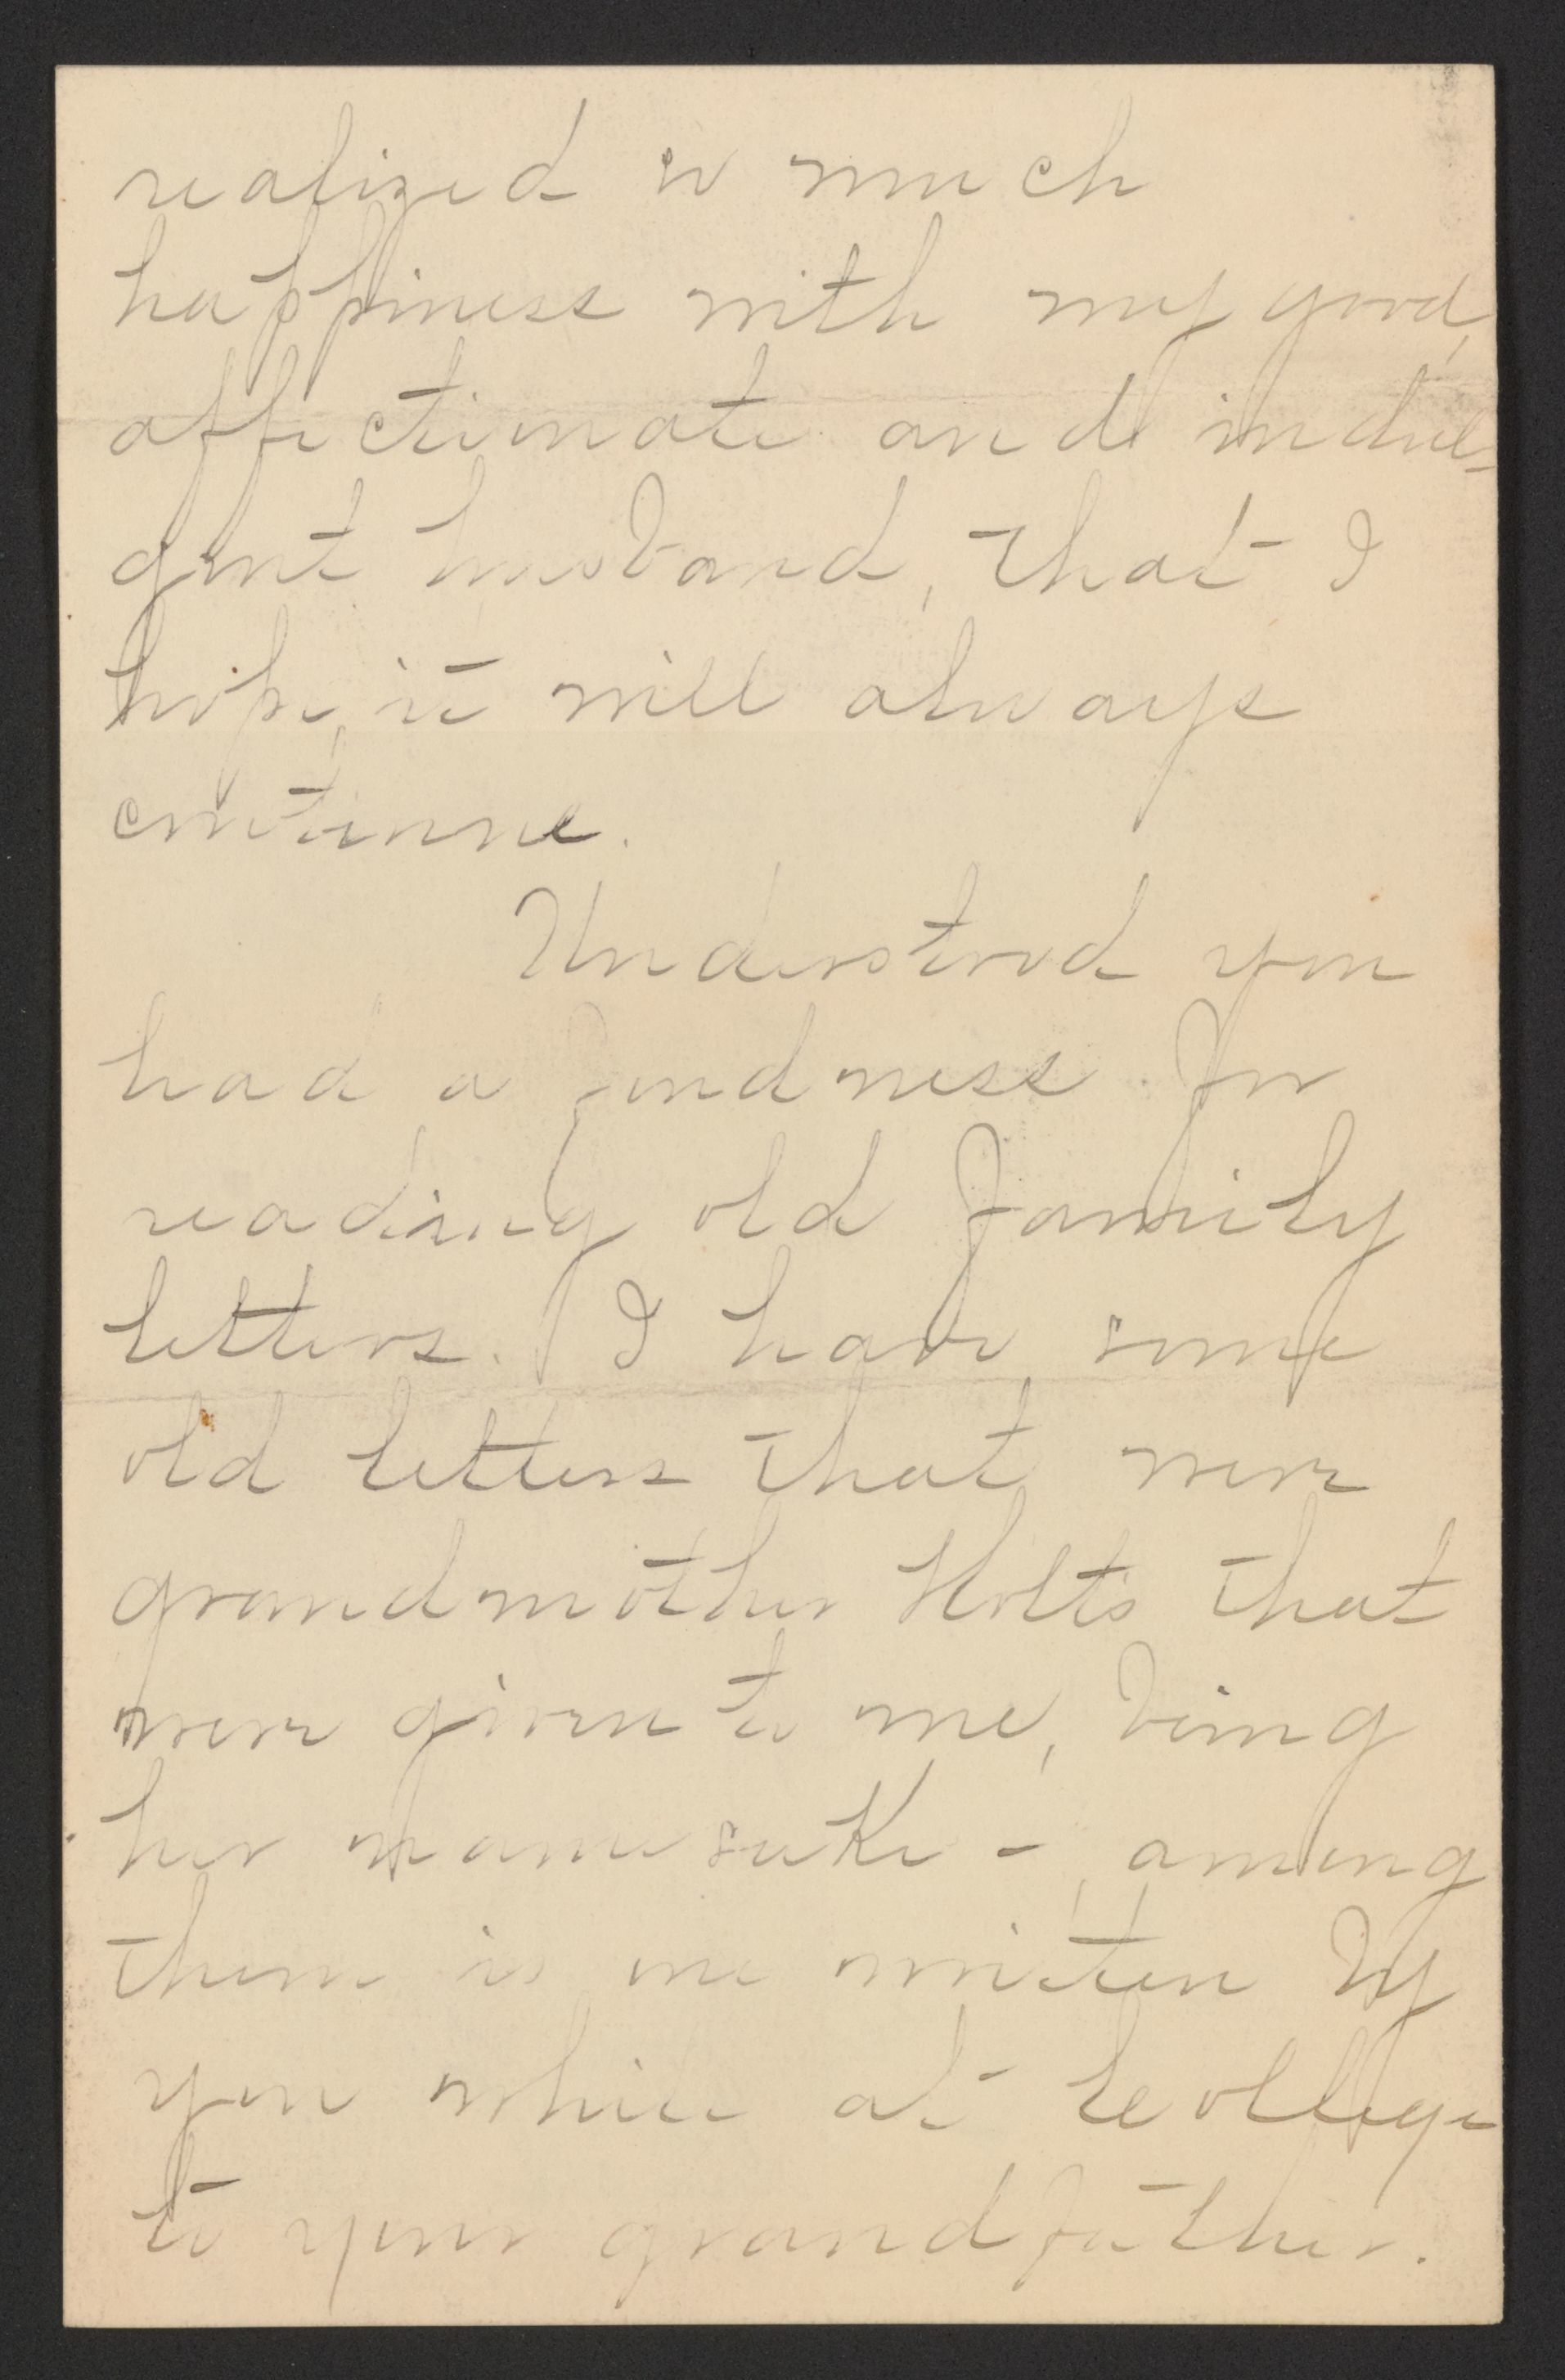 realized so much
happiness with my good,
affectionate and indul-
gent husband, that I
hope, it will always
continue.
Understood you
had a fondness for
reading old family
letters. I have some
old letters that were
grandmother Holts that
were given to me, being
her namesake -, among
them is one written by
you while at College
to your grandfather.